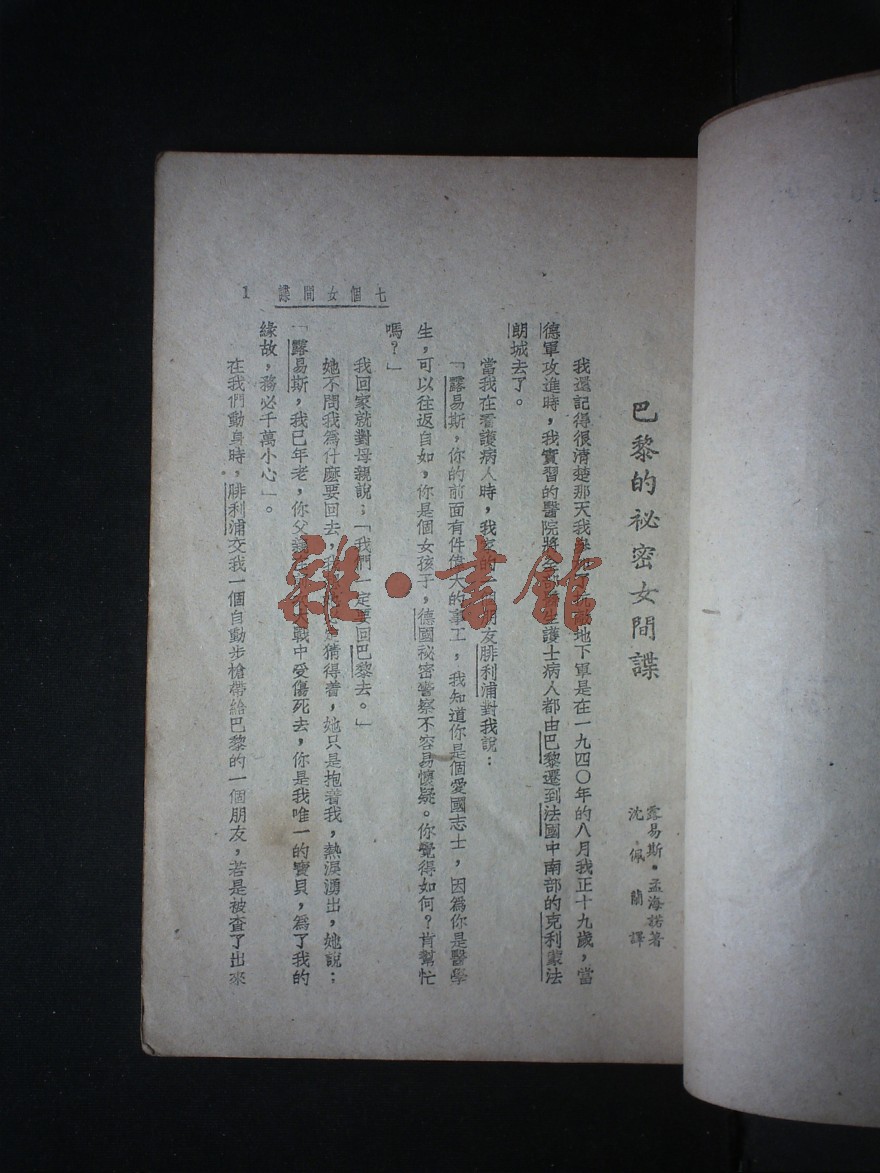 巴黎的祕密女間諜
露易斯・孟海諾著
沈佩蘭譯
我還記得很清楚那天我參加地下軍是在一九四〇年的八月我正十九歲，當
德軍攻進時，我實習的醫院將全部醫生護士病人都由巴黎遷到法國中南部的克利蒙法
朗城去了。
當我在看護病人時，我家的一個朋友腓利浦對我說：
「露易斯，你的前面有件偉大的事工，我知道你是個愛國志士，因爲你是醫學
生，可以往返自如，你是個女孩子，德國祕密警察不容易懷疑。你覺得如何？肯幫忙
嗎？」
我回家就對母親說；「我們一定要回巴黎去。」
她不問我爲什麼要回去，我猜得着，她只是抱著我，熱淚湧出，她說；
「露易斯，我已年老，你父大戰中受傷死去，你是我唯一的寶貝，爲了我的
緣故，務必千萬小心」。
在我們動身時，腓利浦交我一個自動步槍帶給巴黎的一個朋友，若是被查了出來
七個女間諜 1
雜・書館